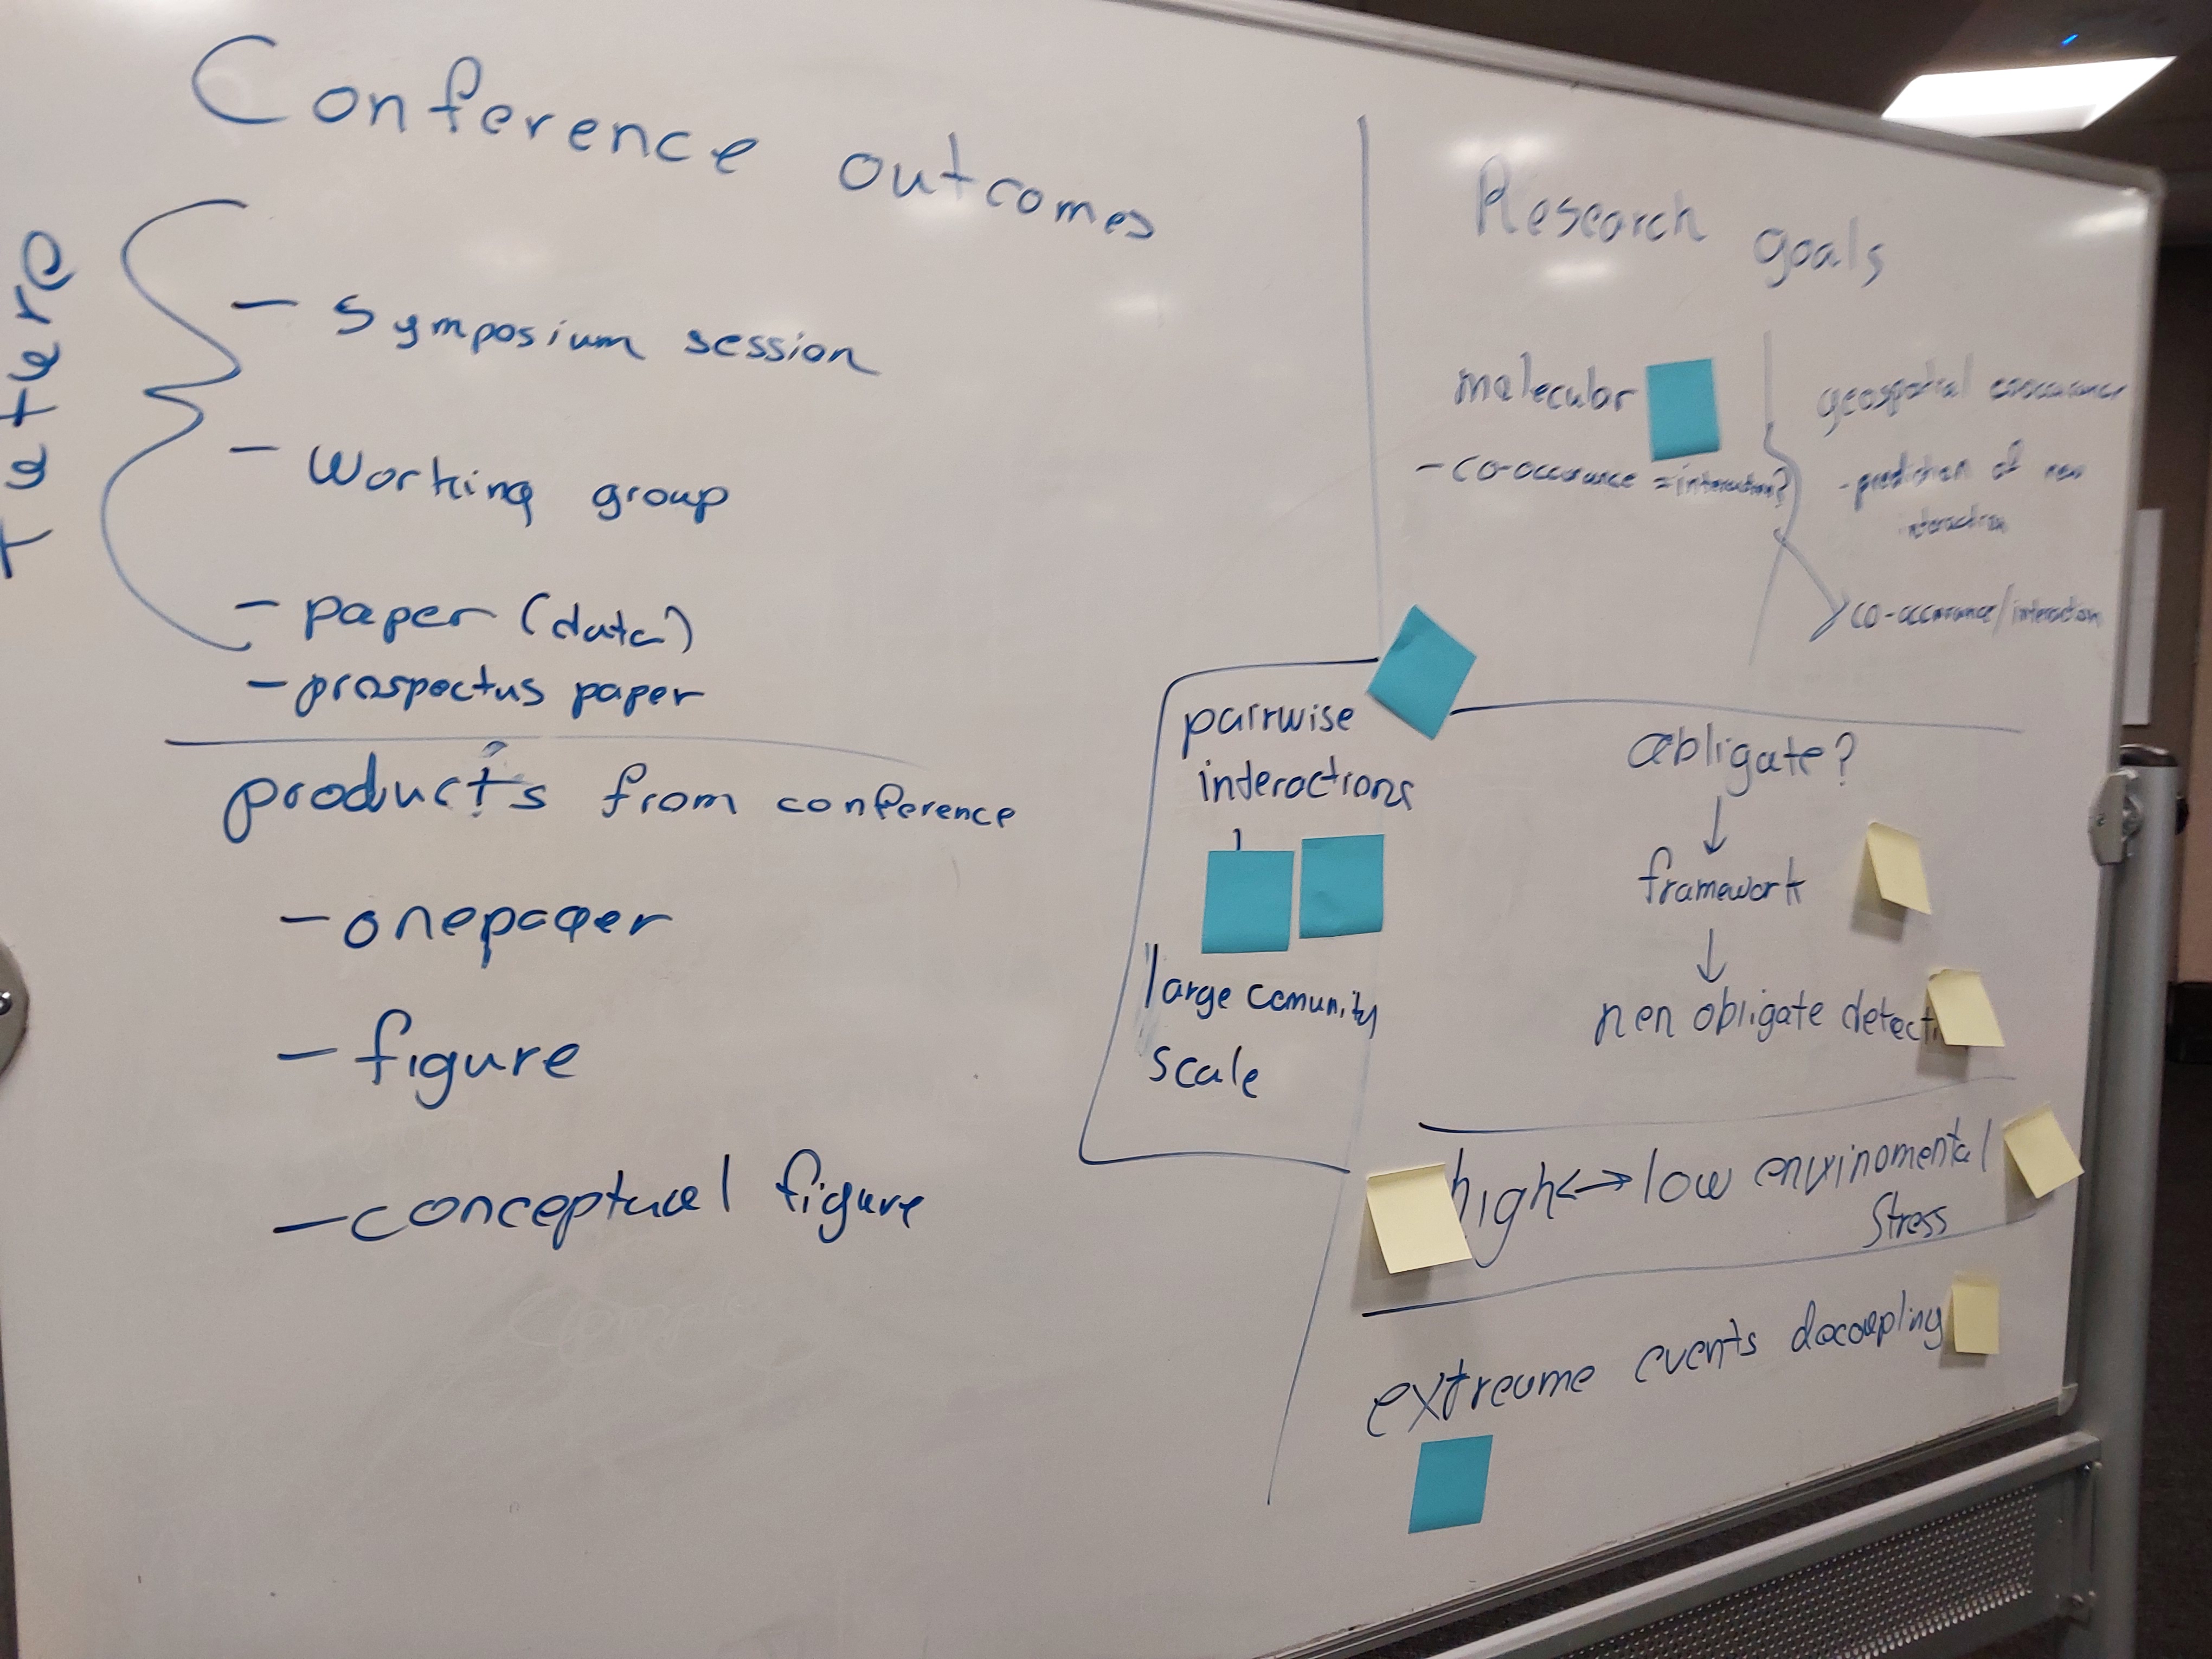 Conference outcomes
Future
- Symposium session
- Working group
- paper (data)
- prospectus paper
products from conference
- onepager
- figure
- conceptual figure
Research goals
molecular
- co-occurance = interaction?
geospatial
- prediction of new
interaction
co-occurance/interaction
pairwise
interactions
large comunity
scale
obligate?
↓
framework
↓
non obligate detecti
high <-> low envinomental
Stress
extreume events decoupling